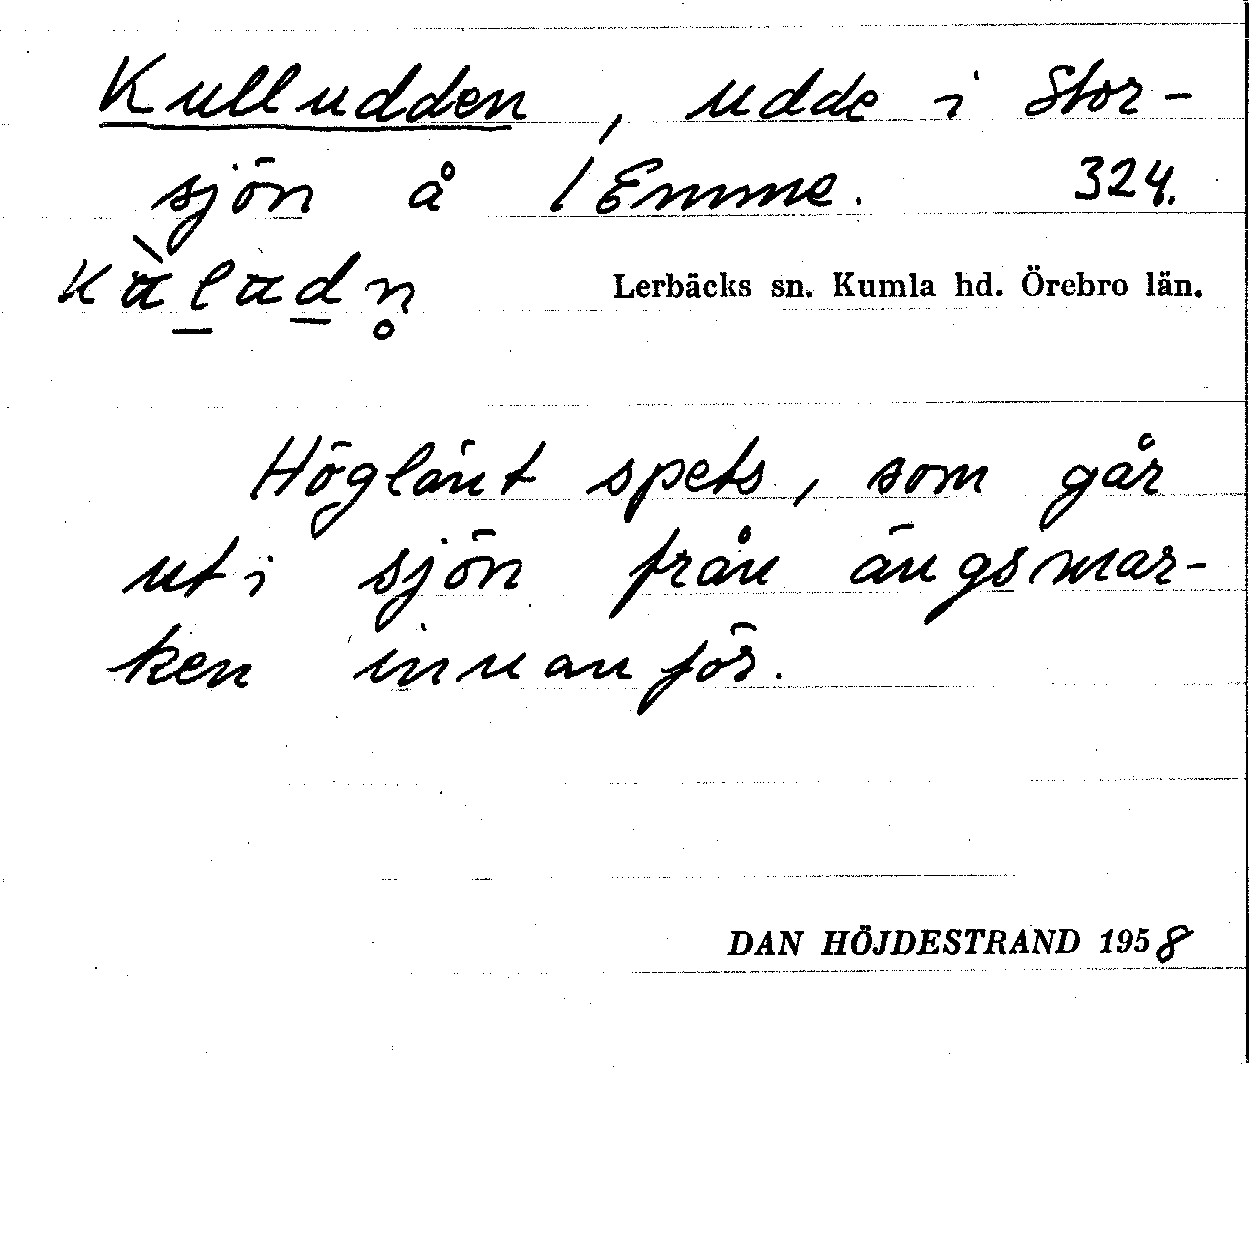 Kulludden, udde i Stor-
sjön å 1 Emme. 324.
Lerbäcks sn. Kumla hd. Örebro län.
Höglänt spets, som går
ut i sjön från ängsmar-
ken innanför.
DAN HÖJDESTRAND 1958